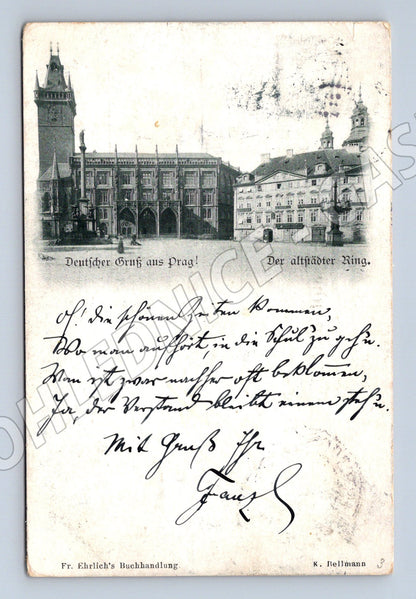 Deutscher Gruß aus Prag!
Der altstädter Ring.
O! die schönen Zeiten kommen,
Wo man aufhört, in die Schul' zu geh'n.
Man ist zwar nachher oft beklommen,
Ja, der Verstand bleibt einem steh'n.
Mit Gruß Ihr
Fr. Ehrlich's Buchhandlung
K. Bellmann
3
POHLEDNICE-ČAS